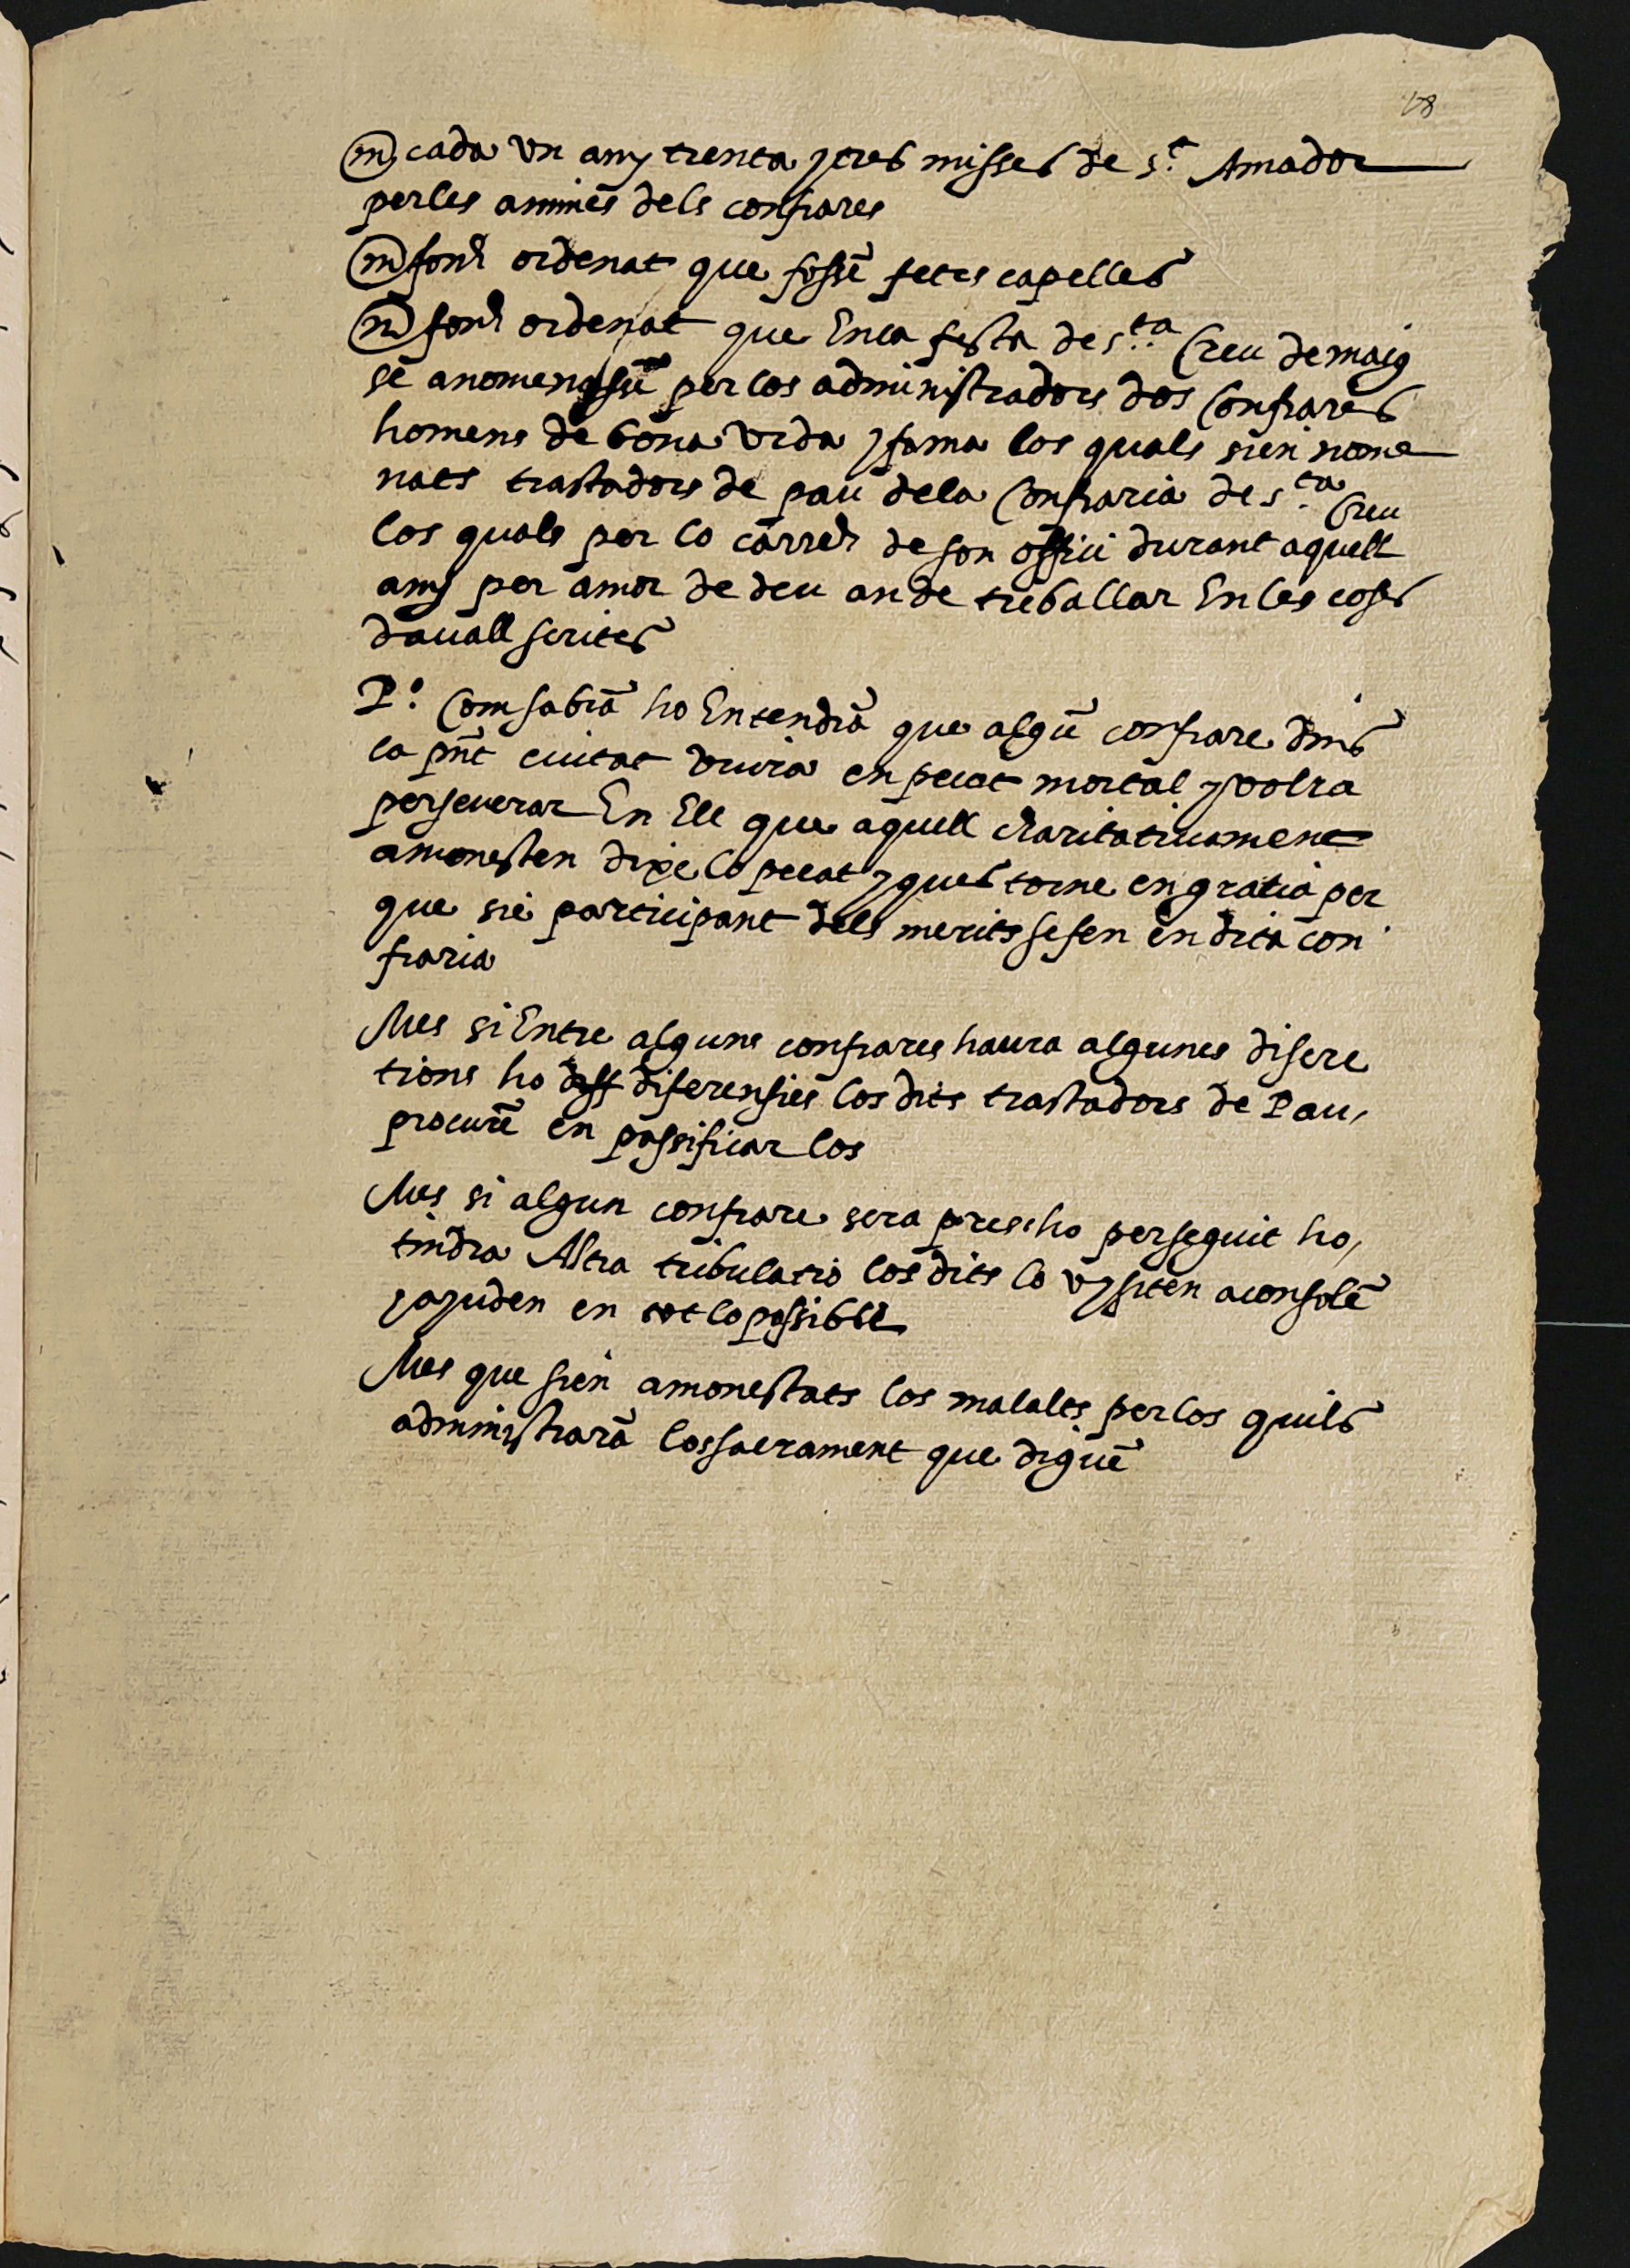 18
m cada vn any trenta y tres misses de st. Amador
perles animes dels confrares
m fonch ordenat que fossē fetes capelles
m fonch ordenat que Enla festa de s.ta Creu de maig
se anomenassē perlos administradors dos Confrares
homens de bona vida y fama los quals sien nome
nats trastadors de pau dela Confraria de s.ta Creu
los quals per lo carrech de son offici durant aquell
any per amor de deu an de treballar En les coses
davall scrites
P.º Com sabrā ho Entendrā que algū confrare dins
la pñt ciutat viuia en pecat mortal y volra
perseuerar En Ell que aquell charitativament
amonesten dixe lo pecat y ques torne en gratia per
que sie participant dels merits se fen en dita con
fraria
Mes si Entre alguns confrares haura algunes disere
tions ho diff diferensies los dits trastadors de Pau,
procurē en passificar los
Mes si algun confrare sera pres, ho perseguit ho,
tindra Altra tribulatio los dits lo vysiten aconsolē
y ajuden en tot lo possible
Mes que sien amonestats los malalts perlos quils
administrarā los sacrament que diguē